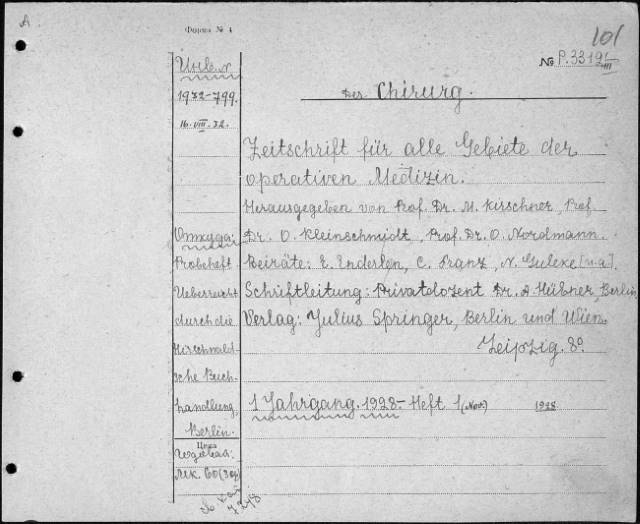 A
Форма № 4
101
№ P.3319/III
Инв. №
1932-799.
16.VIII.32.
Der Chirurg.
Zeitschrift für alle Gebiete der
operativen Medizin.
Herausgegeben von Prof. Dr. M. Kirschner, Prof.
Откуда: Dr. O. Kleinschmidt, Prof. Dr. O. Nordmann.
Probeheft Beiräte: E. Enderlen, C. Franz, N. Guleke [u.a.]
Ueberreicht Schriftleitung: Privatdozent Dr. A Hübner, Berlin
durch die Verlag: Julius Springer, Berlin und Wien.
Hirschwald- Leipzig. 8º
sche Buch-
handlung, 1 Jahrgang. 1928- Heft 1 (Nov) 1928
Berlin.
Цена
Mk. 60